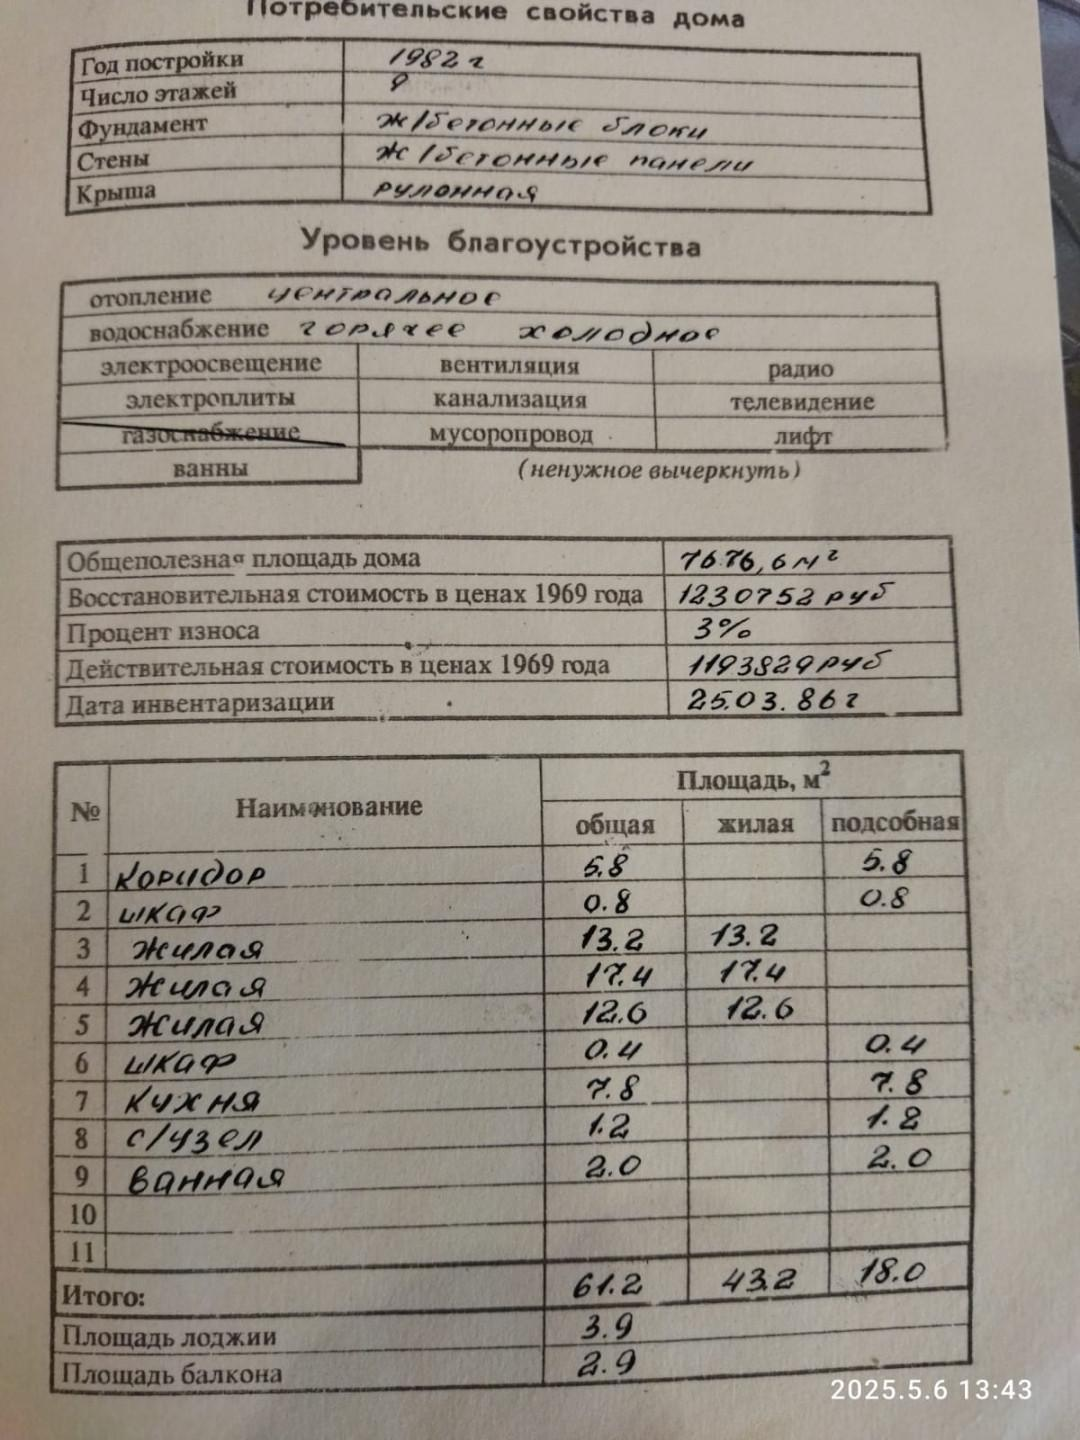 Потребительские свойства дома
Год постройки 1982 г
Число этажей 9
Фундамент ж/бетонные блоки
Стены ж/бетонные панели
Крыша рулонная
Уровень благоустройства
отопление центральное
водоснабжение горячее холодное
электроосвещение вентиляция радио
электроплиты канализация телевидение
газоснабжение мусоропровод лифт
ванны (ненужное вычеркнуть)
Общеполезная площадь дома 7676,6 м²
Восстановительная стоимость в ценах 1969 года 1230752 руб
Процент износа 3%
Действительная стоимость в ценах 1969 года 1193829 руб
Дата инвентаризации 25.03.86 г
№ Наименование Площадь, м²
общая жилая подсобная
1 коридор 5.8 5.8
2 шкаф 0.8 0.8
3 жилая 13.2 13.2
4 жилая 17.4 17.4
5 жилая 12.6 12.6
6 шкаф 0.4 0.4
7 кухня 7.8 7.8
8 с/узел 1.2 1.2
9 ванная 2.0 2.0
10
11
Итого: 61.2 43.2 18.0
Площадь лоджии 3.9
Площадь балкона 2.9
2025.5.6 13:43